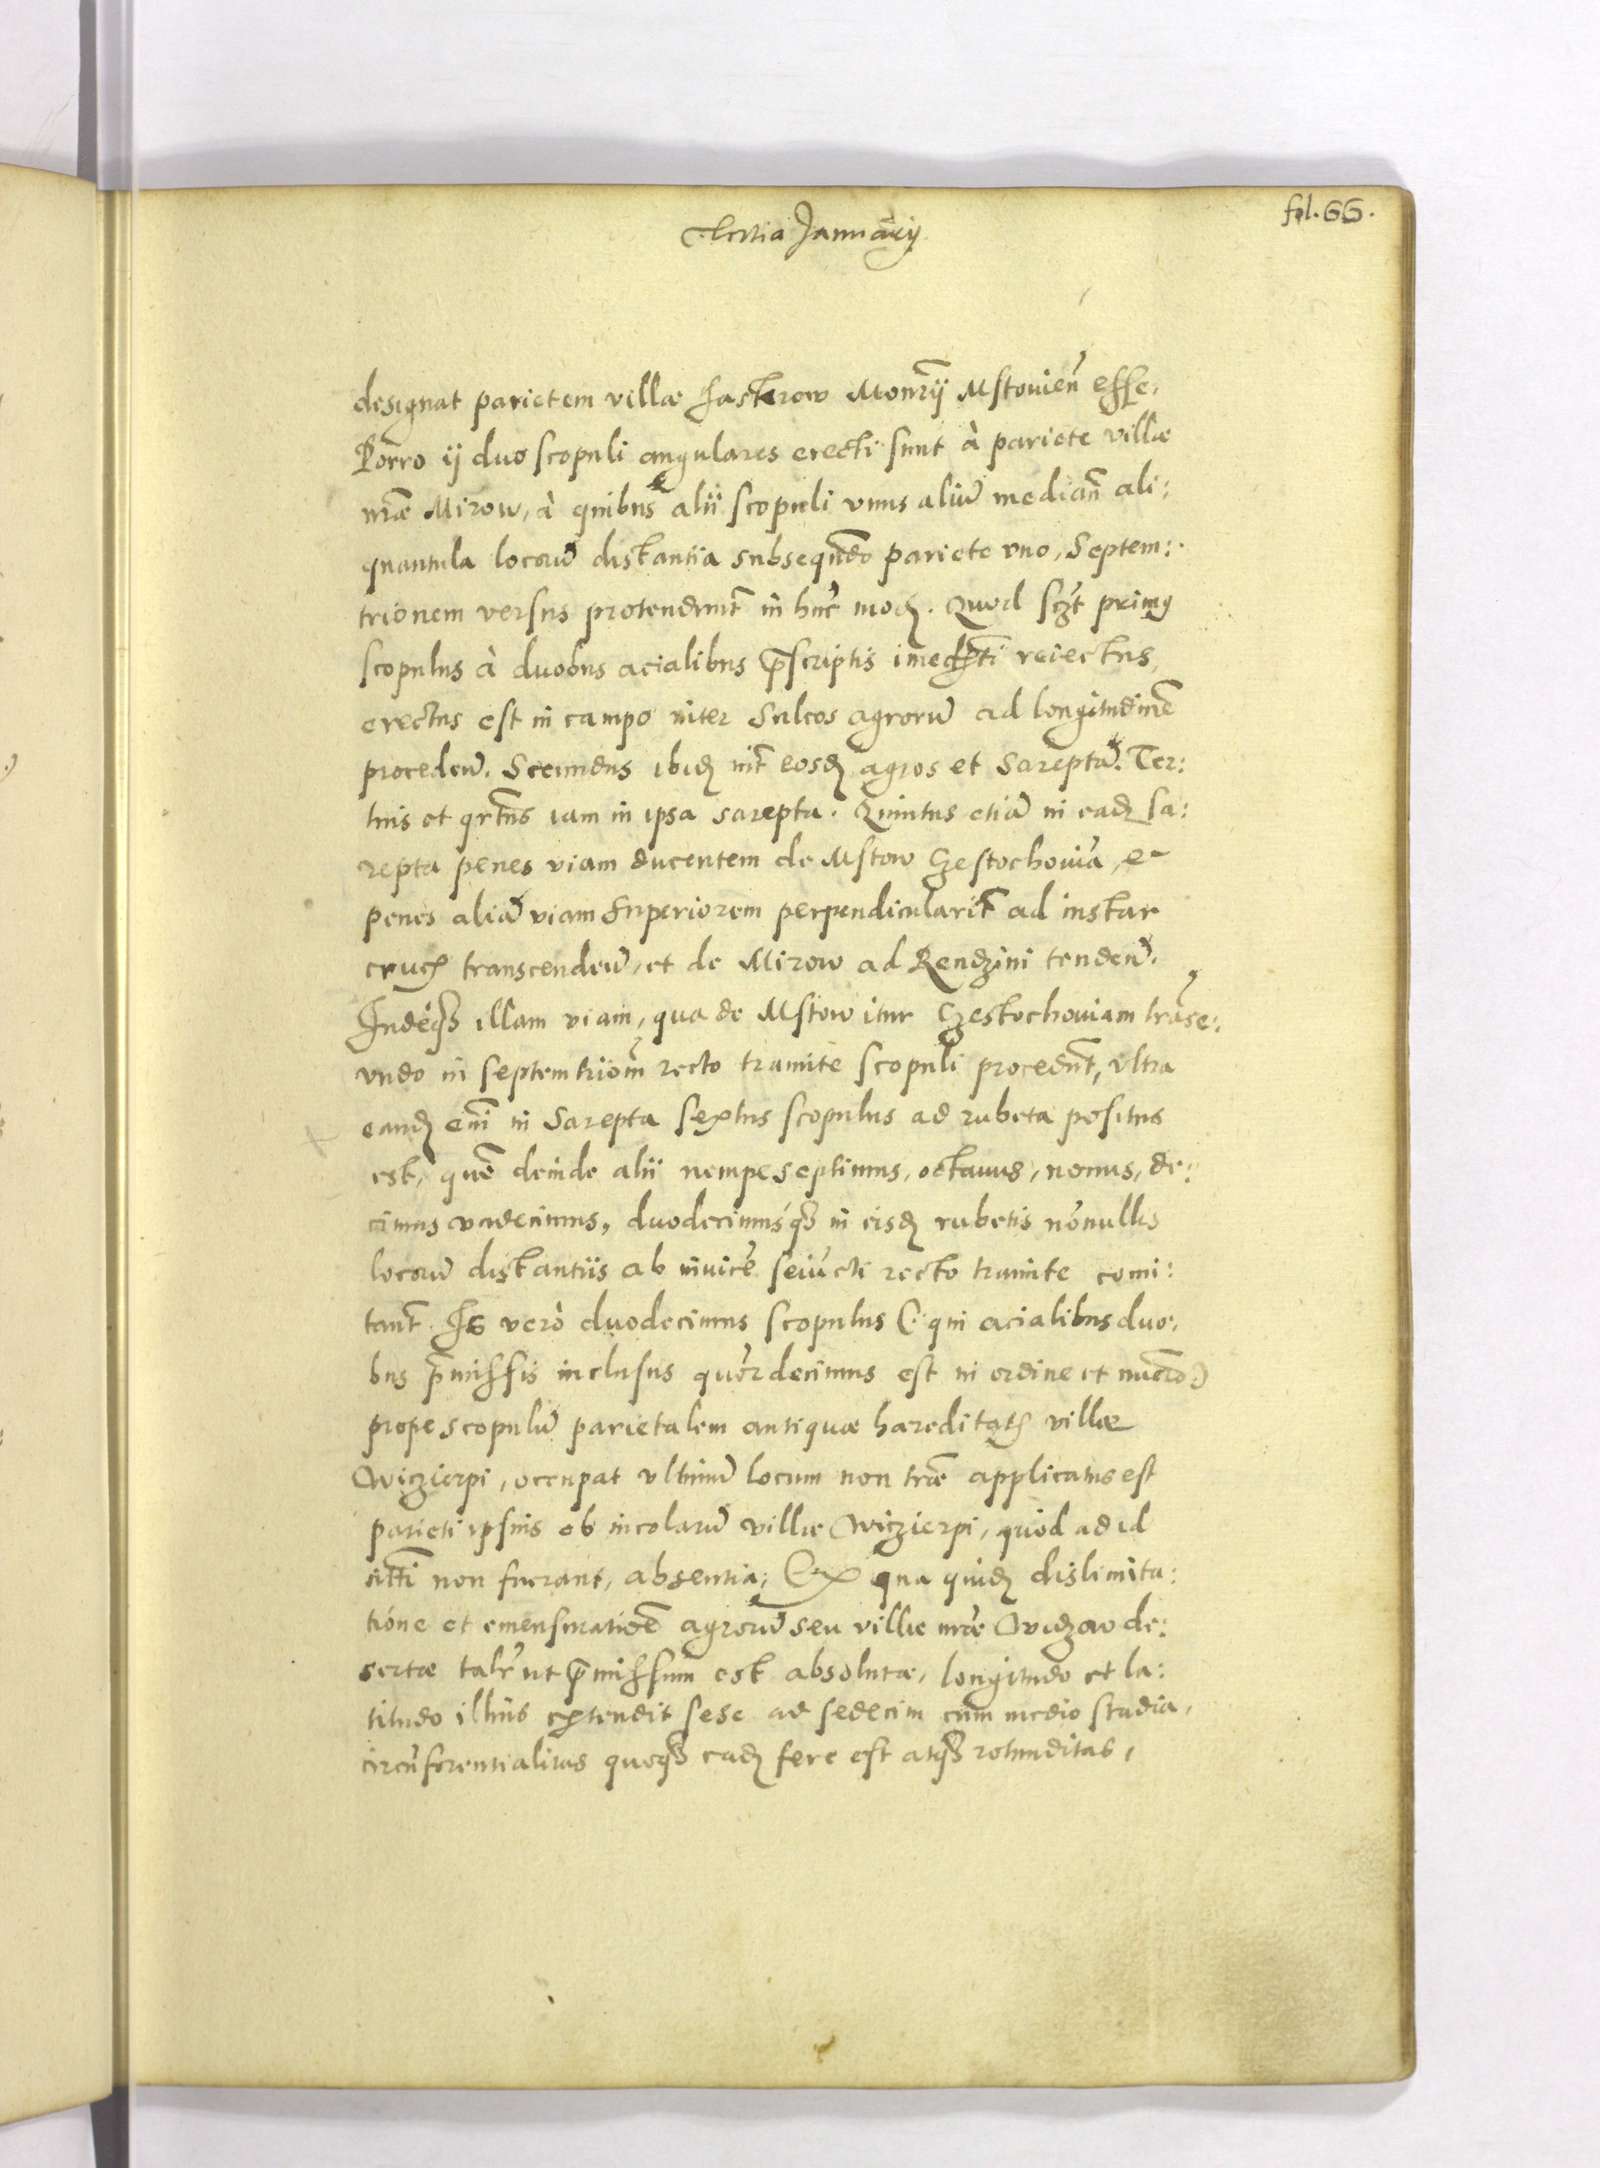 fol. 66.
Tertia Januarij
designat parietem villæ Jaskrow Monrij Mstouien̄ esse.
Porro ij duo scopuli angulares erecti sunt à pariete villæ
nr̄æ Mirow, à quibus alii scopuli vnus aliū median̄ ali:
quantula locorū distantia subsequēdo pariete vno, Septem:
trionem versus protendunt in hūc mod. Quod sczt primus
scopulus à duobus acialibus p̄scriptis imed̄ti reiectus,
erectus est in campo inter Sulcos agrorū ad longitudinē
proceden̄. Secundus ibid int̄ eosd agros et Sareptā. Ter:
tius et qrtus iam in ipsa sarepta. Quintus etiā in ead sa:
repta penes viam ducentem de Mstow Czestochouiā, et
penes aliā viam Superiorem perpendicularit̄ ad instar
crucis transcenden̄, et de Mirow ad Rendzini tenden̄.
Indeq3 illam viam, qua de Mstow itur Czestochouiam trāse:
undo in septemtrionē recto tramite scopuli procedūt, vltra
eand eni in Sarepta sextus scopulus ad rubeta positus
est, quē deinde alii nempe septimus, octauus, nonus, de:
cimus vndecimus, duodecimusq3 in eisd rubetis nōnullis
locorū distantiis ab inuicē seiūcti recto tramite comi:
tant̄. Is verò duodecimus scopulus (: qui acialibus duo:
bus p̄missis inclusus quōrdecimus est in ordine et nuēro:)
prope scopulū parietalem antiquæ hæreditatis villæ
Wiczierpi, occupat vltimū locum non tn̄ applicatus est
parieti ipsius ob incolarū villæ Wiczierpi, quòd ad id
citti non fuerant, absentia; Ex qua quid dislimita:
tióne et emensuratiōe agrorū seu villæ nr̄æ Widzow de:
sertæ talr̄ ut p̄missum est absolutæ, longitudo et la:
titudo illius extendit sese ad sedecim cum medio stadia,
circūferentialitas quoq3 ead fere est atq3 rotunditas,